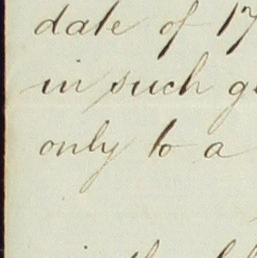 date of 17
in such g
only to a